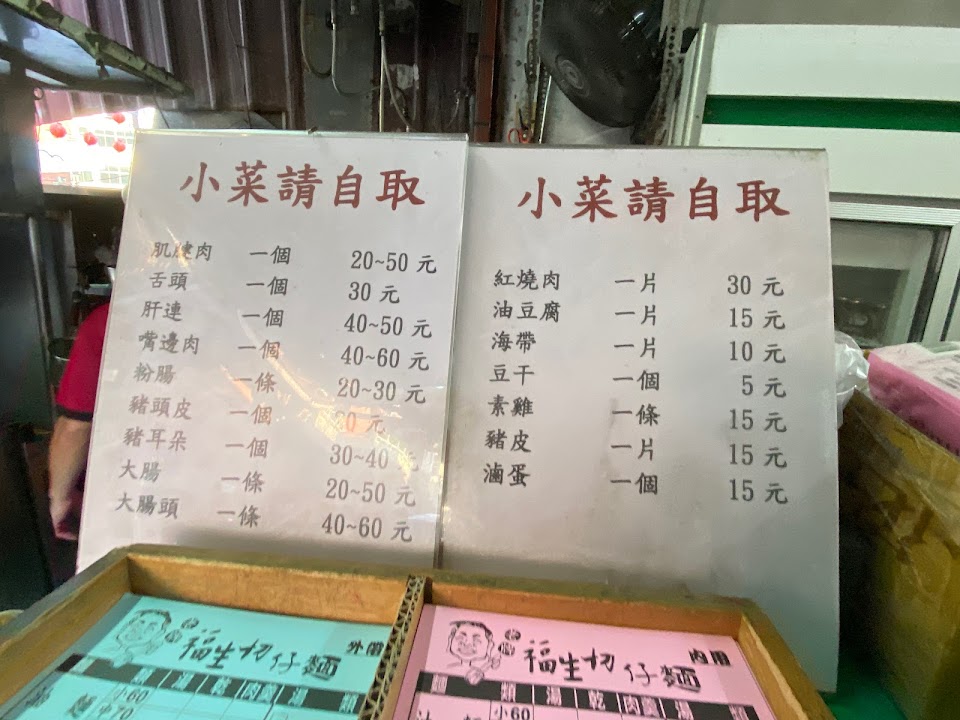 小菜請自取
肌腱肉 一個 20~50 元
舌頭 一個 30 元
肝連 一個 40~50 元
嘴邊肉 一個 40~60 元
粉腸 一條 20~30 元
豬頭皮 一個 20 元
豬耳朵 一個 30~40 元
大腸 一條 20~50 元
大腸頭 一條 40~60 元
小菜請自取
紅燒肉 一片 30 元
油豆腐 一片 15 元
海帶 一片 10 元
豆干 一個 5 元
素雞 一條 15 元
豬皮 一片 15 元
滷蛋 一個 15 元
福生切仔麵 外帶
乾 肉羹 湯 類
麵 小60
中70
福生切仔麵 內用
麵 類 湯 乾 肉羹 湯 類
小60